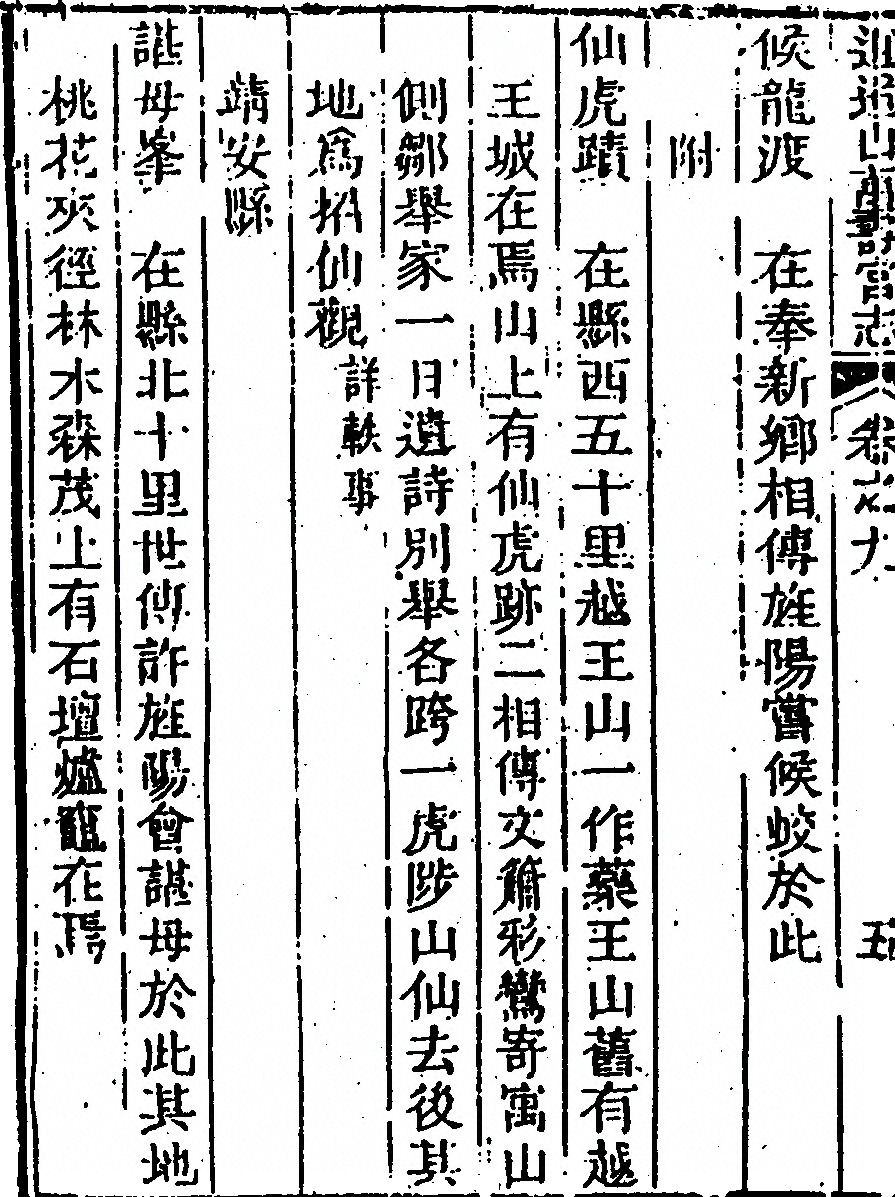 逍遙山萬壽宮志 卷之九 五
候龍渡 在奉新鄉相傳旌陽嘗候蛟於此
附
仙虎蹟 在縣西五十里越王山一作藥王山舊有越
王城在焉山上有仙虎跡二相傳文簫彩鸞寄寓山
側鄒舉家一日遺詩別舉各跨一虎陟山仙去後其
地爲招仙觀詳軼事
靖安縣
諶母峯 在縣北十里世傳許旌陽會諶母於此其地
桃花夾徑林木森茂上有石壇爐竈在焉